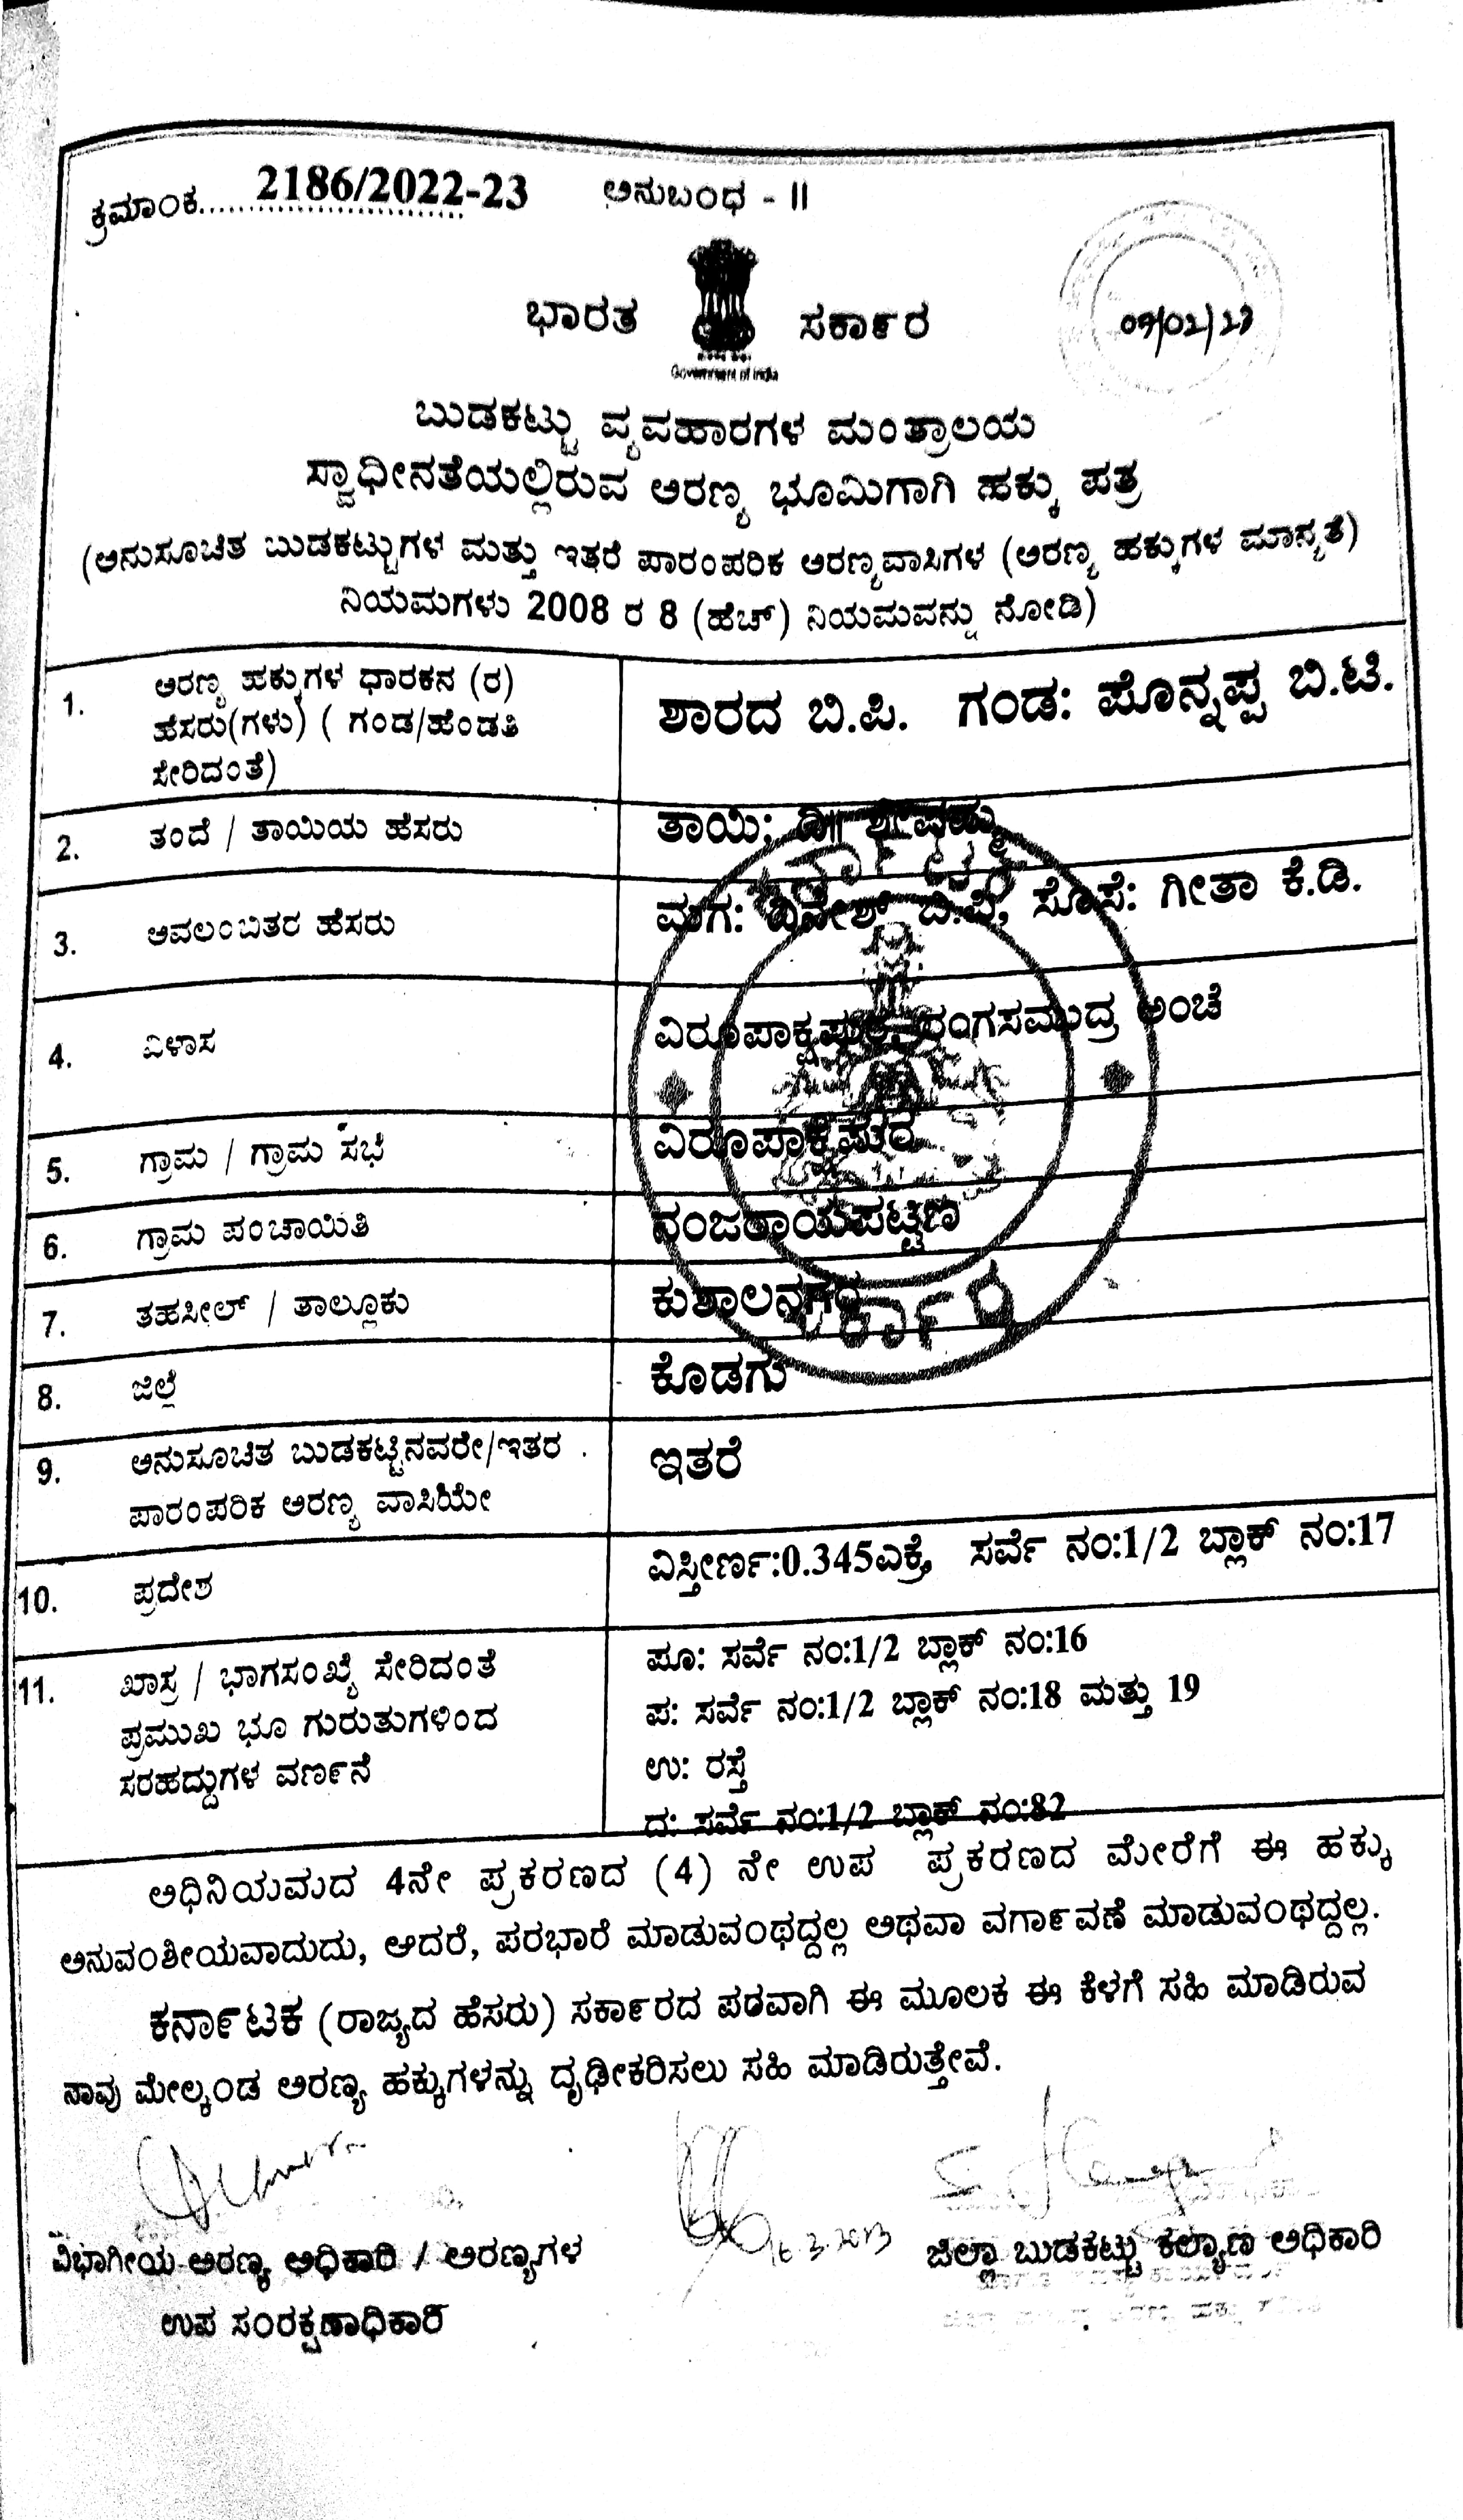 ಕ್ರಮಾಂಕ..... 2186/2022-23 ಅನುಬಂಧ - II
ಭಾರತ ಸರ್ಕಾರ
Government of India
ಬುಡಕಟ್ಟು ವ್ಯವಹಾರಗಳ ಮಂತ್ರಾಲಯ
ಸ್ವಾಧೀನತೆಯಲ್ಲಿರುವ ಅರಣ್ಯ ಭೂಮಿಗಾಗಿ ಹಕ್ಕು ಪತ್ರ
(ಅನುಸೂಚಿತ ಬುಡಕಟ್ಟುಗಳ ಮತ್ತು ಇತರೆ ಪಾರಂಪರಿಕ ಅರಣ್ಯವಾಸಿಗಳ (ಅರಣ್ಯ ಹಕ್ಕುಗಳ ಮಾನ್ಯತೆ)
ನಿಯಮಗಳು 2008 ರ 8 (ಹೆಚ್) ನಿಯಮವನ್ನು ನೋಡಿ)
1. ಅರಣ್ಯ ಹಕ್ಕುಗಳ ಧಾರಕನ (ರ)
ಹೆಸರು(ಗಳು) ( ಗಂಡ/ಹೆಂಡತಿ
ಸೇರಿದಂತೆ)
ಶಾರದ ಬಿ.ಪಿ. ಗಂಡ: ಪೊನ್ನಪ್ಪ ಬಿ.ಟಿ.
2. ತಂದೆ / ತಾಯಿಯ ಹೆಸರು
ತಾಯಿ:
3. ಅವಲಂಬಿತರ ಹೆಸರು
ಮಗ: ದಿನೇಶ್ ಬಿ.ಪಿ, ಸೊಸೆ: ಗೀತಾ ಕೆ.ಡಿ.
4. ವಿಳಾಸ
ವಿರೂಪಾಕ್ಷಪುರ ರಂಗಸಮುದ್ರ ಅಂಚೆ
5. ಗ್ರಾಮ / ಗ್ರಾಮ ಸಭೆ
ವಿರೂಪಾಕ್ಷಪುರ
6. ಗ್ರಾಮ ಪಂಚಾಯಿತಿ
ನಂಜರಾಯಪಟ್ಟಣ
7. ತಹಸೀಲ್ / ತಾಲ್ಲೂಕು
ಕುಶಾಲನಗರ
8. ಜಿಲ್ಲೆ
ಕೊಡಗು
9. ಅನುಸೂಚಿತ ಬುಡಕಟ್ಟಿನವರೇ/ಇತರ
ಪಾರಂಪರಿಕ ಅರಣ್ಯ ವಾಸಿಯೇ
ಇತರೆ
10. ಪ್ರದೇಶ
ವಿಸ್ತೀರ್ಣ:0.345ಎಕ್ರೆ, ಸರ್ವೆ ನಂ:1/2 ಬ್ಲಾಕ್ ನಂ:17
11. ಖಾಸ್ರ / ಭಾಗಸಂಖ್ಯೆ ಸೇರಿದಂತೆ
ಪ್ರಮುಖ ಭೂ ಗುರುತುಗಳಿಂದ
ಸರಹದ್ದುಗಳ ವರ್ಣನೆ
ಪೂ: ಸರ್ವೆ ನಂ:1/2 ಬ್ಲಾಕ್ ನಂ:16
ಪ: ಸರ್ವೆ ನಂ:1/2 ಬ್ಲಾಕ್ ನಂ:18 ಮತ್ತು 19
ಉ: ರಸ್ತೆ
ದ: ಸರ್ವೆ ನಂ:1/2 ಬ್ಲಾಕ್ ನಂ:82
ಅಧಿನಿಯಮದ 4ನೇ ಪ್ರಕರಣದ (4) ನೇ ಉಪ ಪ್ರಕರಣದ ಮೇರೆಗೆ ಈ ಹಕ್ಕು
ಅನುವಂಶೀಯವಾದುದು, ಆದರೆ, ಪರಭಾರೆ ಮಾಡುವಂಥದ್ದಲ್ಲ ಅಥವಾ ವರ್ಗಾವಣೆ ಮಾಡುವಂಥದ್ದಲ್ಲ.
ಕರ್ನಾಟಕ (ರಾಜ್ಯದ ಹೆಸರು) ಸರ್ಕಾರದ ಪರವಾಗಿ ಈ ಮೂಲಕ ಈ ಕೆಳಗೆ ಸಹಿ ಮಾಡಿರುವ
ನಾವು ಮೇಲ್ಕಂಡ ಅರಣ್ಯ ಹಕ್ಕುಗಳನ್ನು ದೃಢೀಕರಿಸಲು ಸಹಿ ಮಾಡಿರುತ್ತೇವೆ.
ವಿಭಾಗೀಯ ಅರಣ್ಯ ಅಧಿಕಾರಿ / ಅರಣ್ಯಗಳ
ಉಪ ಸಂರಕ್ಷಣಾಧಿಕಾರಿ
ಜಿಲ್ಲಾ ಬುಡಕಟ್ಟು ಕಲ್ಯಾಣ ಅಧಿಕಾರಿ